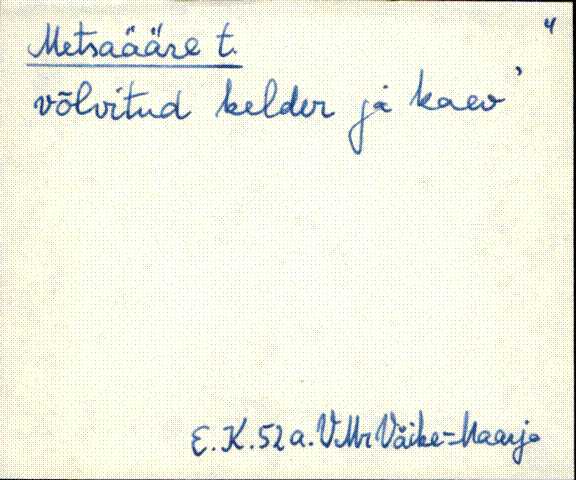 4
Metsaääre t.
võlvitud kelder ja kaev'
E. K. 52 a. VMr Väike-Maarja